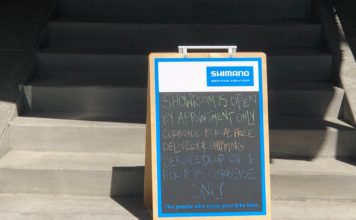 SHIMANO
SERVICE CENTER
SHOWROOM IS OPEN
BY APPOINTMENT ONLY
CURBSIDE PICK UP, FREE
DELIVERY & SHIPPING
SERVICE DROP OFF &
PICK UP IS CURBSIDE
ONLY
The people who know your bike best.